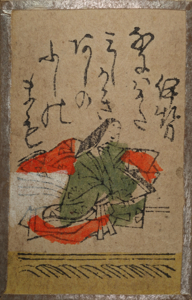 伊勢
なにはかた
みしかき
あしの
ふしの
まも